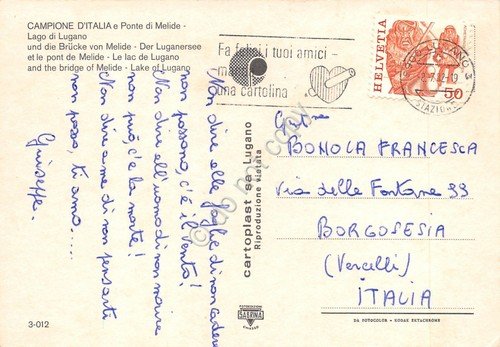 CAMPIONE D'ITALIA e Ponte di Melide -
Lago di Lugano
und die Brücke von Melide - Der Luganersee
et le pont de Melide - Le lac de Lugano
and the bridge of Melide - Lake of Lugano
Fa felici i tuoi amici -
una cartolina
HELVETIA
50
STAZIONE
Non dire alle foglie di non cadere
non possono, c'è il vento!
Non dire all'uomo di non morire
non può, c'è la morte!
Non dire a me di non pensarti
non posso, ti amo....
Giuseppe.
cartoplast sa Lugano
Riproduzione vietata
BONOLA FRANCESCA
Via delle Fontane 99
BORGOSESIA
(Vercelli)
ITALIA
3-012
SABRINA
DA FOTOCOLOR - KODAK EKTACHROME